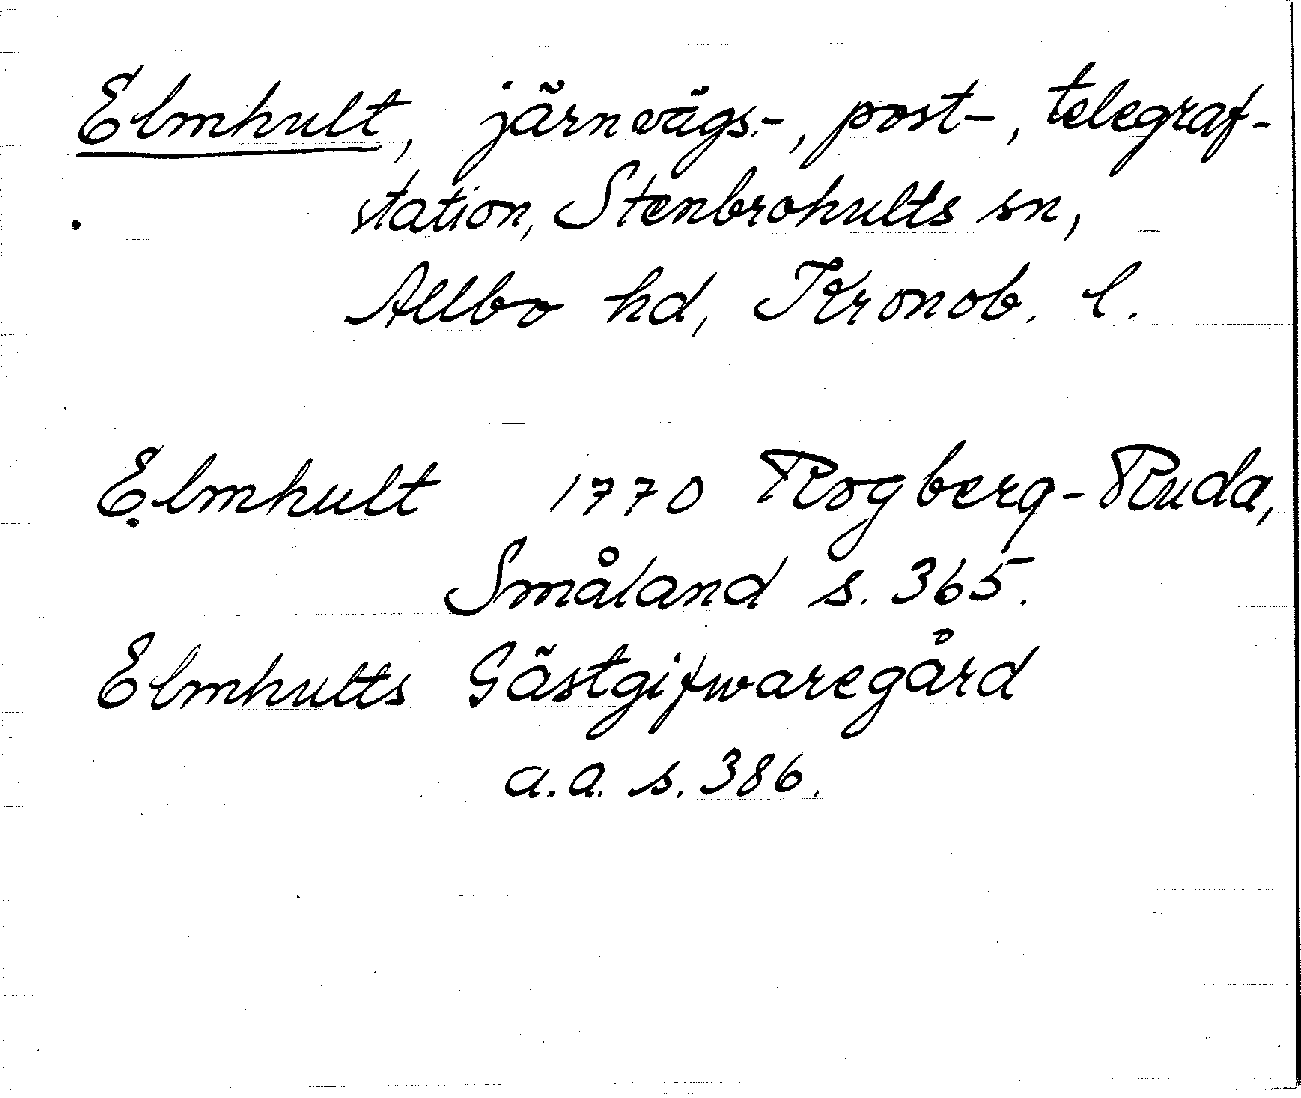 Elmhult, järnvägs-, post-, telegraf-
station, Stenbrohults sn,
Allbo hd, Kronob. l.
Elmhult 1770 Rogberg-Ruda,
Småland s. 365.
Elmhults Gästgifwaregård
a.a. s. 386.